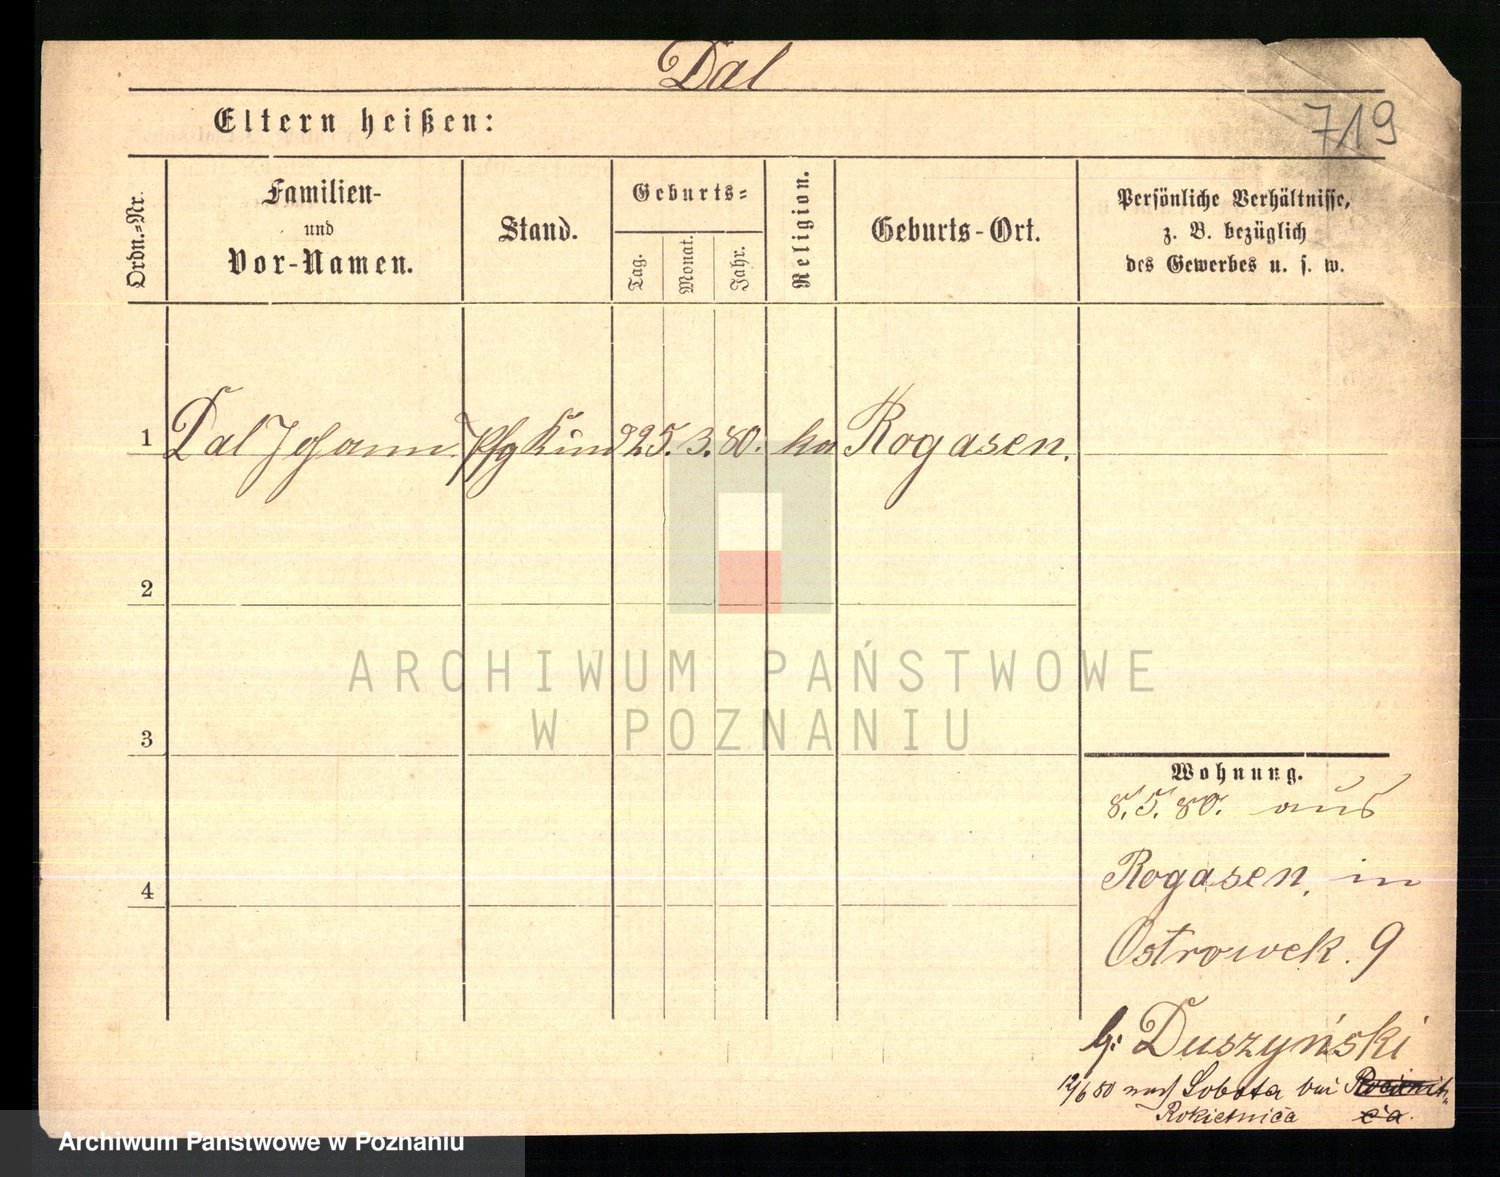 Dal
Eltern heißen:
719
Ordn.-Nr.
Familien-
und
Vor-Namen.
Stand.
Geburts-
Tag.
Monat.
Jahr.
Religion.
Geburts-Ort.
Persönliche Verhältnisse,
z. B. bezüglich
des Gewerbes u. s. w.
1 Dal Johann Pflg Kind 25. 3. 80. ka Rogasen.
2
3
4
ARCHIWUM PAŃSTWOWE
W POZNANIU
Wohnung.
8.5.80. aus
Rogasen, in
Ostrowek. 9
b: Duszyński
12/6 80 nach Sobota bei
Rokietnica
Archiwum Państwowe w Poznaniu